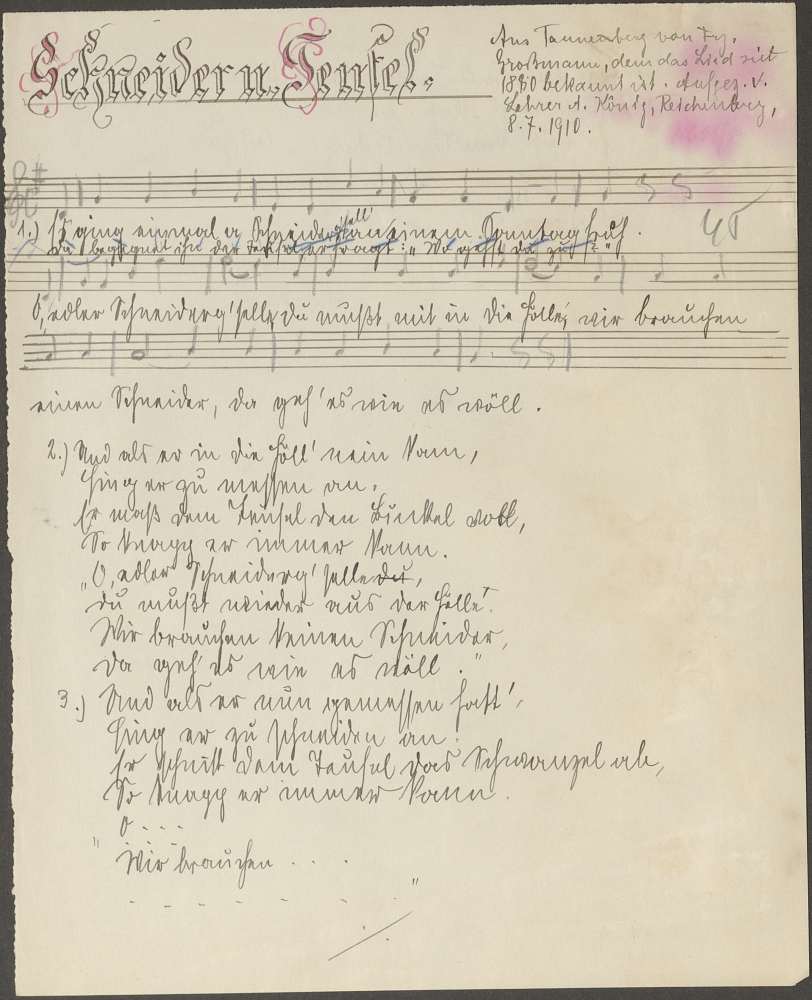 Schneider u. Teufel.
Aus Tannenberg von Fz.
Großmann, dem das Lied seit
1880 bekannt ist. Aufgez. v.
Lehrer A. König, Reichenberg,
8.7.1910.
1.) Es ging einmal a Schneiderg'sell an einem Sonntag früh.
Da begegnet ihm der Teufel, er fragt: "Wo gehst du zu?"
O, edler Schneiderg'selle, du mußt mit in die Hölle, wir brauchen
einen Schneider, da geh' es wie es wöll.
2.) Und als er in die Höll' nein kam,
Fing er zu messen an.
Er maß dem Teufel den Buckel voll,
So knapp er immer kann.
"O, edler Schneiderg'selle du,
du mußt wieder aus der Hölle.
Wir brauchen keinen Schneider,
da geh' es wie es wöll."
3.) Und als er nun gemessen hatt',
Fing er zu schneiden an.
Er schnitt dem Teufel das Schwanzel ab,
So knapp er immer kann.
O - - -
" Wir brauchen . . . .
- - - - - - - "